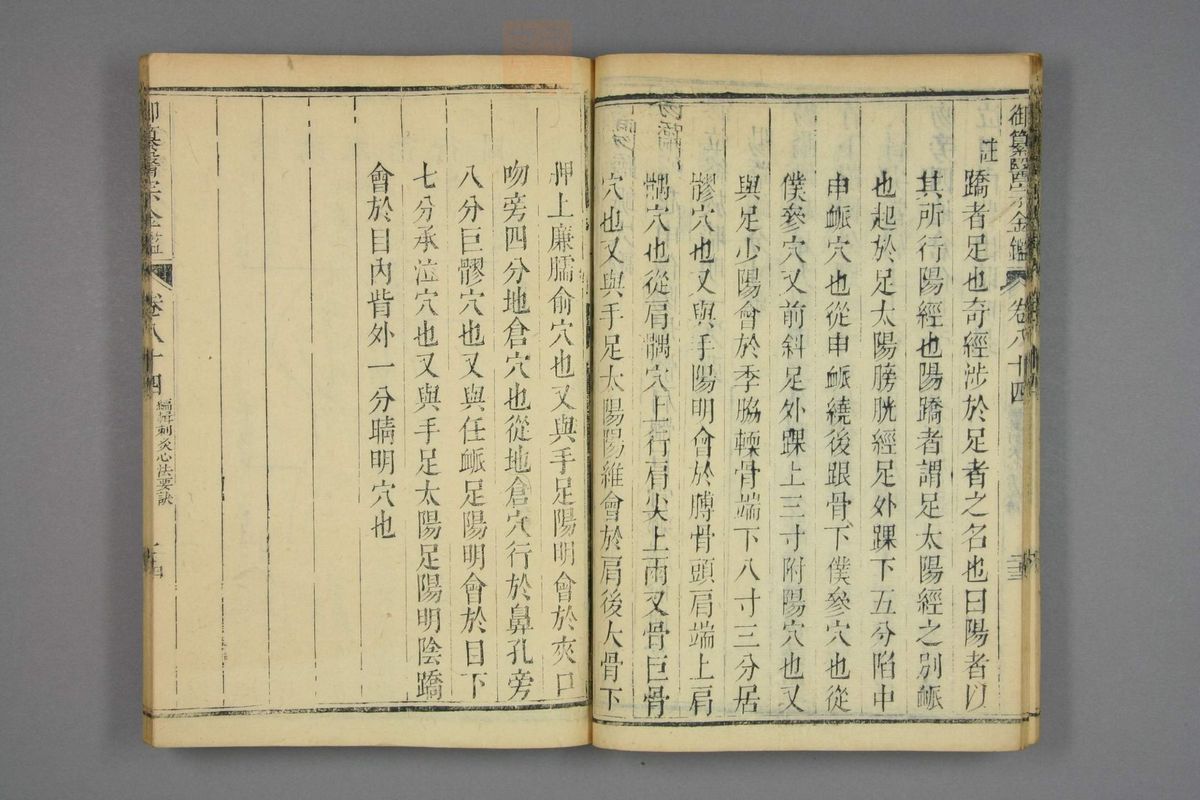 御纂醫宗金鑑 卷八十四
註
蹻者足也奇經涉於足者之名也曰陽者以
其所行陽經也陽蹻者謂足太陽經之別䘑
也起於足太陽膀胱經足外踝下五分陷中
申䘑穴也從申䘑繞後跟骨下僕參穴也從
僕參穴又前斜足外踝上三寸附陽穴也又
與足少陽會於季脇輭骨端下八寸三分居
髎穴也又與手陽明會於膊骨頭肩端上肩
髃穴也從肩髃穴上行肩尖上兩叉骨巨骨
穴也又與手足太陽陽維會於肩後大骨下
胛上廉臑俞穴也又與手足陽明會於夾口
吻旁四分地倉穴也從地倉穴行於鼻孔旁
八分巨髎穴也又與任䘑足陽明會於目下
七分承泣穴也又與手足太陽足陽明陰蹻
會於目內眥外一分睛明穴也
御纂醫宗金鑑 卷八十四 編緝刺灸心法要訣